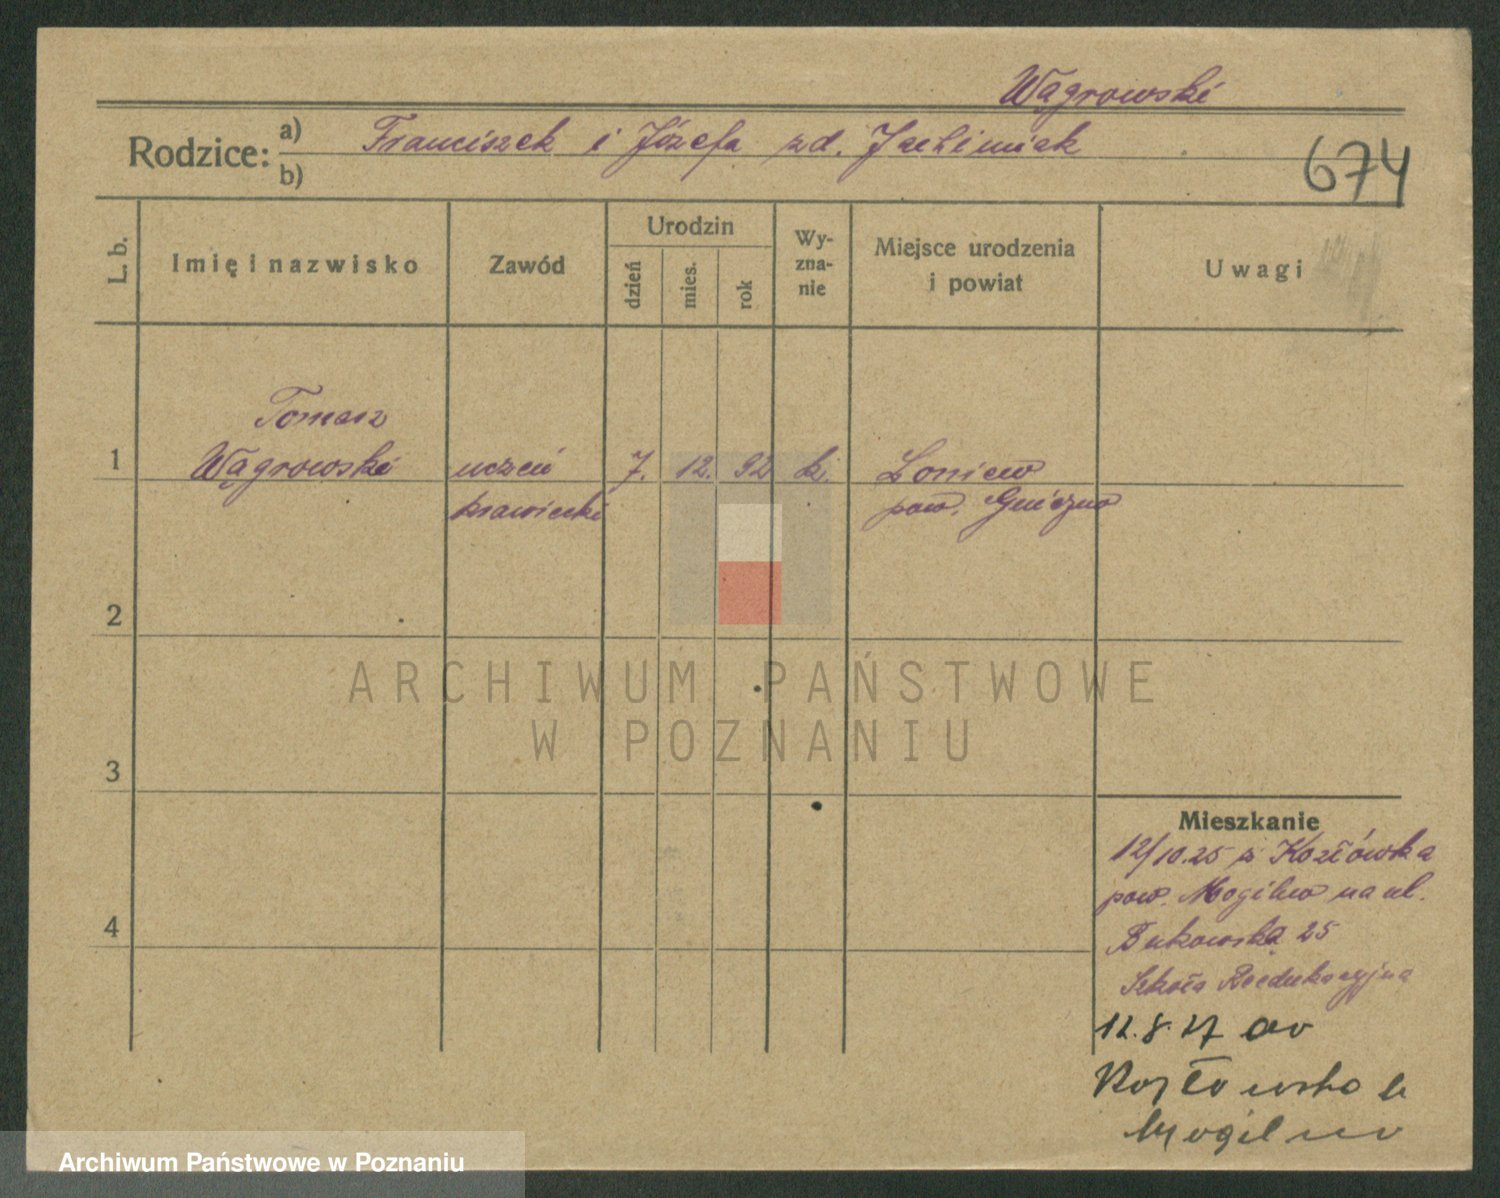 Wągrowski
Rodzice:
a) Franciszek i Józefa zd. Jachimiak
b)
674
L. b.
Imię i nazwisko
Zawód
Urodzin
dzień
mies.
rok
Wy-
zna-
nie
Miejsce urodzenia
i powiat
Uwagi
Tomasz
1 Wągrowski uczeń 7. 12. 92 k.
krawiecki pow. Gniezno
2
3
4
ARCHIWUM PAŃSTWOWE
W POZNANIU
Mieszkanie
12/10.25 z Kozłówka
pow. Mogilno na ul.
Bukowska 25
Szkoła Reedukacyjna
12.8.27
Mogilno
Archiwum Państwowe w Poznaniu